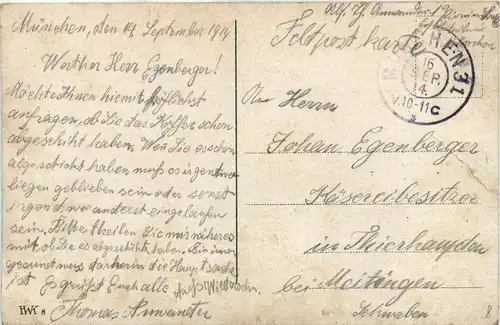 München, den 14. September 1914
Werther Herr Egenberger!
Möchte Ihnen hiemit höflichst
anfragen, ob Sie das Koffer schon
abgeschikt haben. Wen Sie es schon
abgeschickt haben muß es irgentwo
liegen geblieben sein oder sonst
irgendwo anderst eingelaufen
sein. Bitte theilen Sie mir näheres
mit, ob Sie es abgeschikt haben. Bin immer
gesund was darherin die Hauptsache
ist Es grüßt Euch alle Auf Wiedersehn.
Thomas Anwander
HWK 8
Feldpostkarte
MÜNCHEN 31
16 SEP. 14.
V.10-11 C
An Herrn
Johan Egenberger
Käsereibesitzer
in Thierhaupten
bei Meitingen
Schwaben